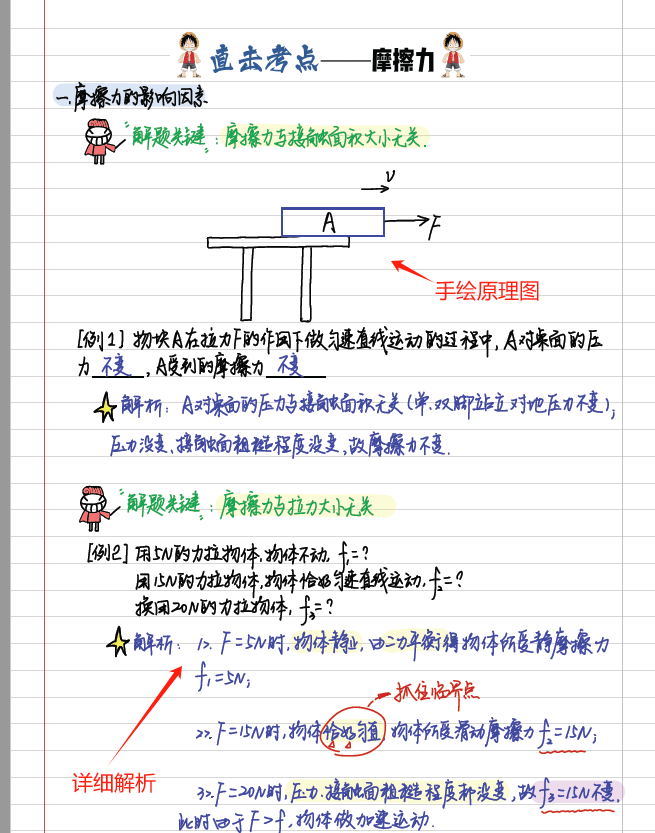 直击考点——摩擦力
一.摩擦力的影响因素
"解题关键":摩擦力与接触面积大小无关.
v
A
F
手绘原理图
[例1] 物块A在拉力F的作用下做匀速直线运动的过程中,A对桌面的压
力 不变 ,A受到的摩擦力 不变
解析: A对桌面的压力与接触面积无关(单、双脚站立对地压力不变),
压力没变、接触面粗糙程度没变,故摩擦力不变.
"解题关键":摩擦力与拉力大小无关
[例2] 用5N的力拉物体,物体不动,f₁=?
用15N的力拉物体,物体恰好匀速直线运动,f₂=?
换用20N的力拉物体,f₃=?
解析: 1>. F=5N时,物体静止,由二力平衡得物体所受静摩擦力
f₁=5N;
抓住临界点
2>. F=15N时,物体恰好匀直,物体所受滑动摩擦力f₂=15N;
详细解析
3>. F=20N时,压力、接触面粗糙程度都没变,故f₃=15N不变,
此时由于F>f,物体做加速运动.